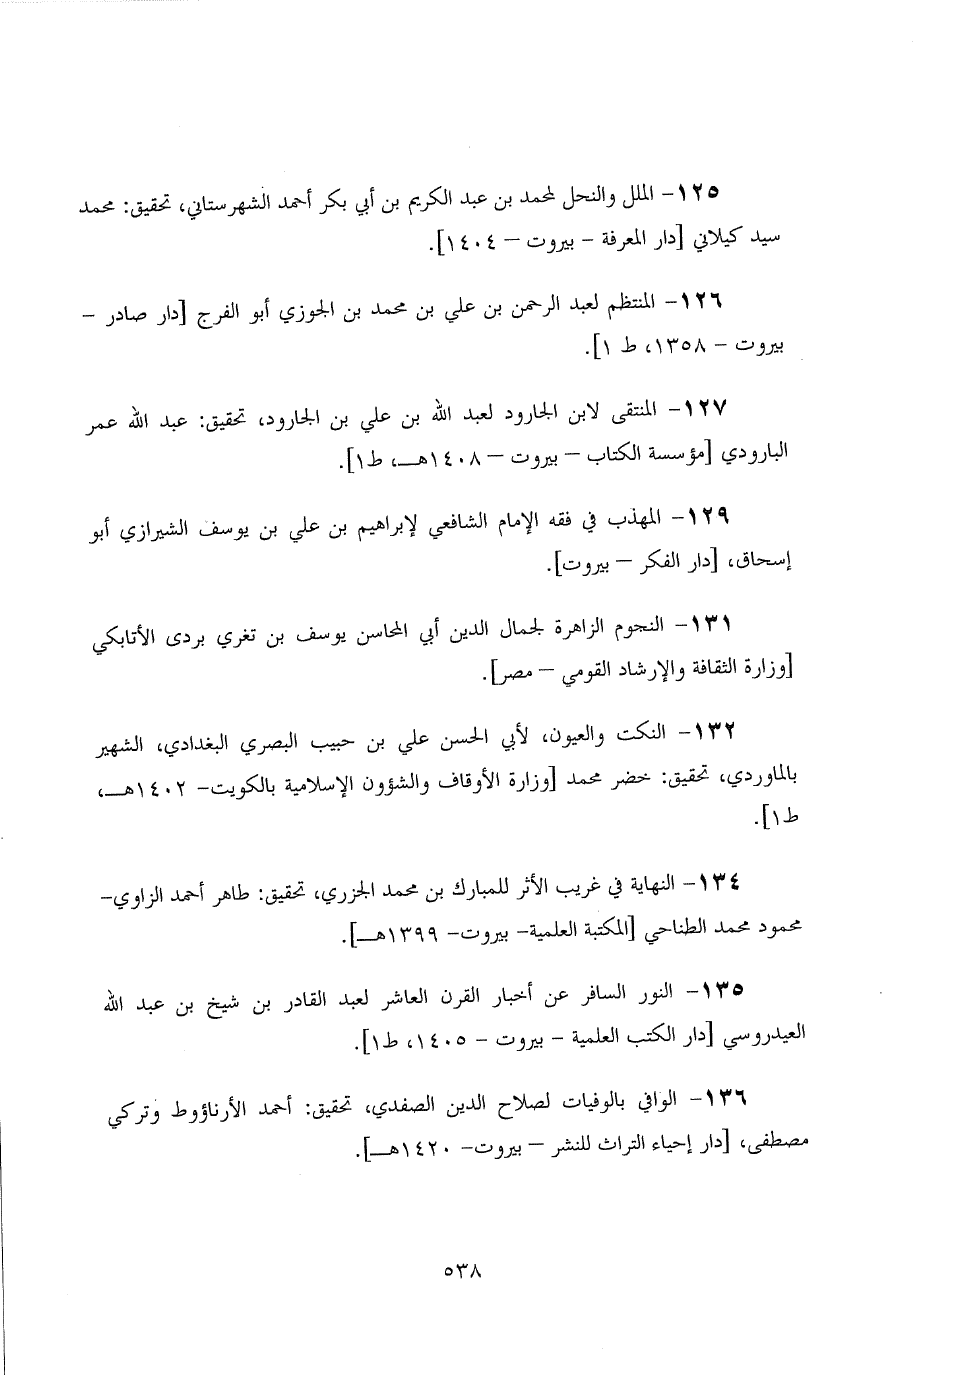 ١٢٥- الملل والنحل لمحمد بن عبد الكريم بن أبي بكر أحمد الشهرستاني، تحقيق: محمد
سيد كيلاني [دار المعرفة – بيروت – ١٤٠٤].
١٢٦- المنتظم لعبد الرحمن بن علي بن محمد بن الجوزي أبو الفرج [دار صادر –
بيروت – ١٣٥٨، ط ١].
١٢٧- المنتقى لابن الجارود لعبد الله بن علي بن الجارود، تحقيق: عبد الله عمر
البارودي [مؤسسة الكتاب – بيروت – ١٤٠٨هـ، ط١].
١٢٩- المهذب في فقه الإمام الشافعي لإبراهيم بن علي بن يوسف الشيرازي أبو
إسحاق، [دار الفكر – بيروت].
١٣١- النجوم الزاهرة لجمال الدين أبي المحاسن يوسف بن تغري بردى الأتابكي
[وزارة الثقافة والإرشاد القومي – مصر].
١٣٢- النكت والعيون، لأبي الحسن علي بن حبيب البصري البغدادي، الشهير
بالماوردي، تحقيق: خضر محمد [وزارة الأوقاف والشؤون الإسلامية بالكويت- ١٤٠٢هـ،
ط١].
١٣٤- النهاية في غريب الأثر للمبارك بن محمد الجزري، تحقيق: طاهر أحمد الزاوي-
محمود محمد الطناحي [المكتبة العلمية- بيروت- ١٣٩٩هـ].
١٣٥- النور السافر عن أخبار القرن العاشر لعبد القادر بن شيخ بن عبد الله
العيدروسي [دار الكتب العلمية – بيروت – ١٤٠٥، ط١].
١٣٦- الوافي بالوفيات لصلاح الدين الصفدي، تحقيق: أحمد الأرناؤوط وتركي
مصطفى، [دار إحياء التراث للنشر – بيروت- ١٤٢٠هـ].
٥٣٨